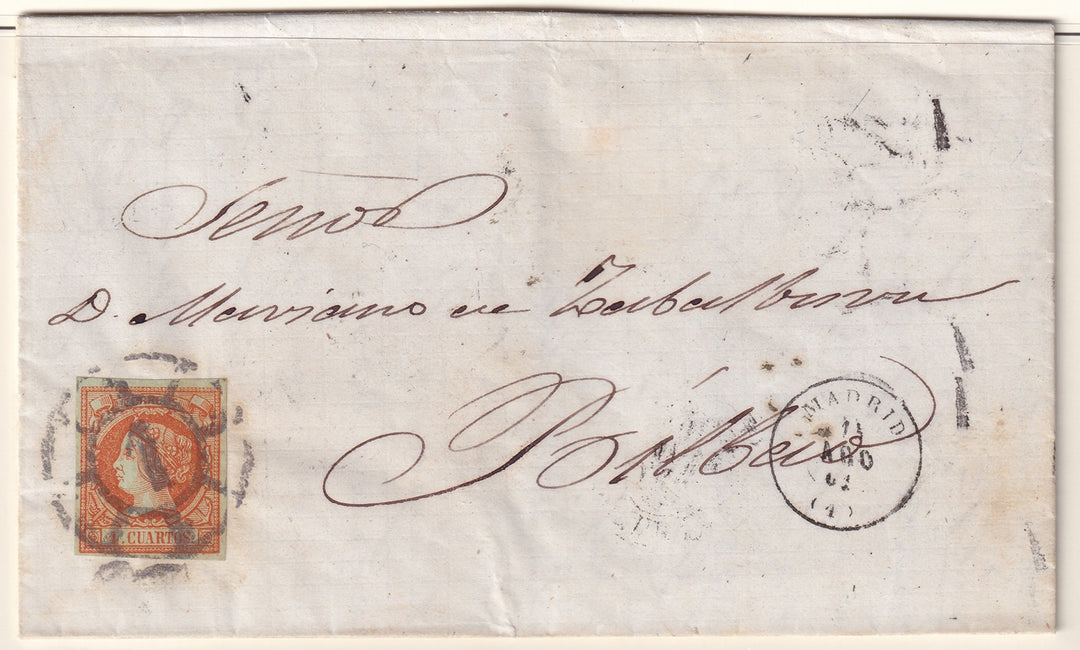 Señor
D. Mariano de Zabalburu
Bilbao
MADRID
AGO
(1)
4 CUARTOS